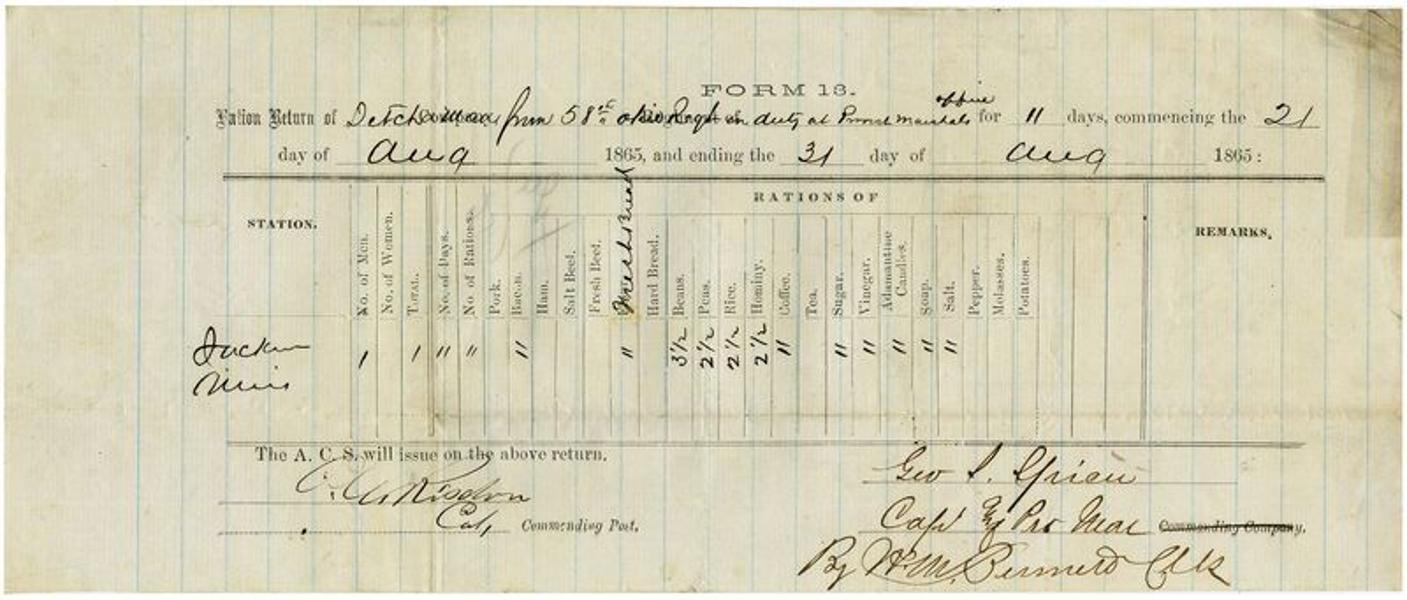 FORM 13.
office
Ration Return of Detchd man from 58th Ohio Regt on duty at Provost Marshals for 11 days, commencing the 21
day of Aug 1865, and ending the 31 day of Aug 1865:
RATIONS OF
STATION. No. of Men. No. of Women. Total. No. of Days. No. of Rations. Pork. Bacon. Ham. Salt Beef. Fresh Beef. Fresh Bread Hard Bread. Beans. Peas. Rice. Hominy. Coffee. Tea. Sugar. Vinegar. Adamantine Candles. Soap. Salt. Pepper. Molasses. Potatoes. REMARKS.
1 1 11 11 11 11 3½ 2½ 2½ 2½ 11 11 11 11 11 11
Miss
The A. C. S. will issue on the above return.
Geo
Risdon
Col, Commanding Post.
Capt & Pro Mar Commanding Company.
By Wm. Clk